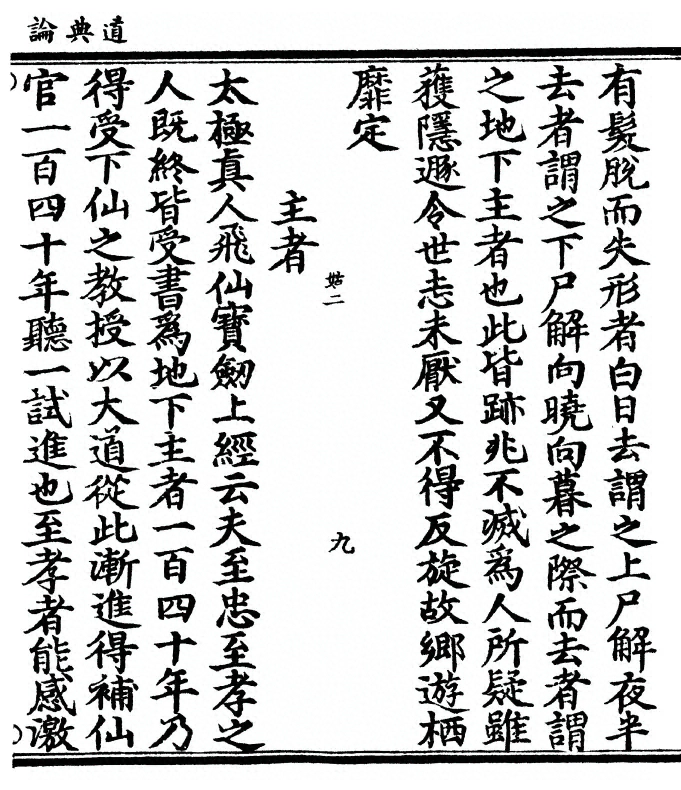 道典論
有髮脫而失形者白日去謂之上尸解夜半
去者謂之下尸解向曉向暮之際而去者謂
之地下主者也此皆跡兆不滅為人所疑雖
獲隱遯令世志未厭又不得反旋故鄉遊栖
靡定
姑二
九
主者
太極真人飛仙寶劒上經云夫至忠至孝之
人既終皆受書為地下主者一百四十年乃
得受下仙之教授以大道從此漸進得補仙
官一百四十年聽一試進也至孝者能感激